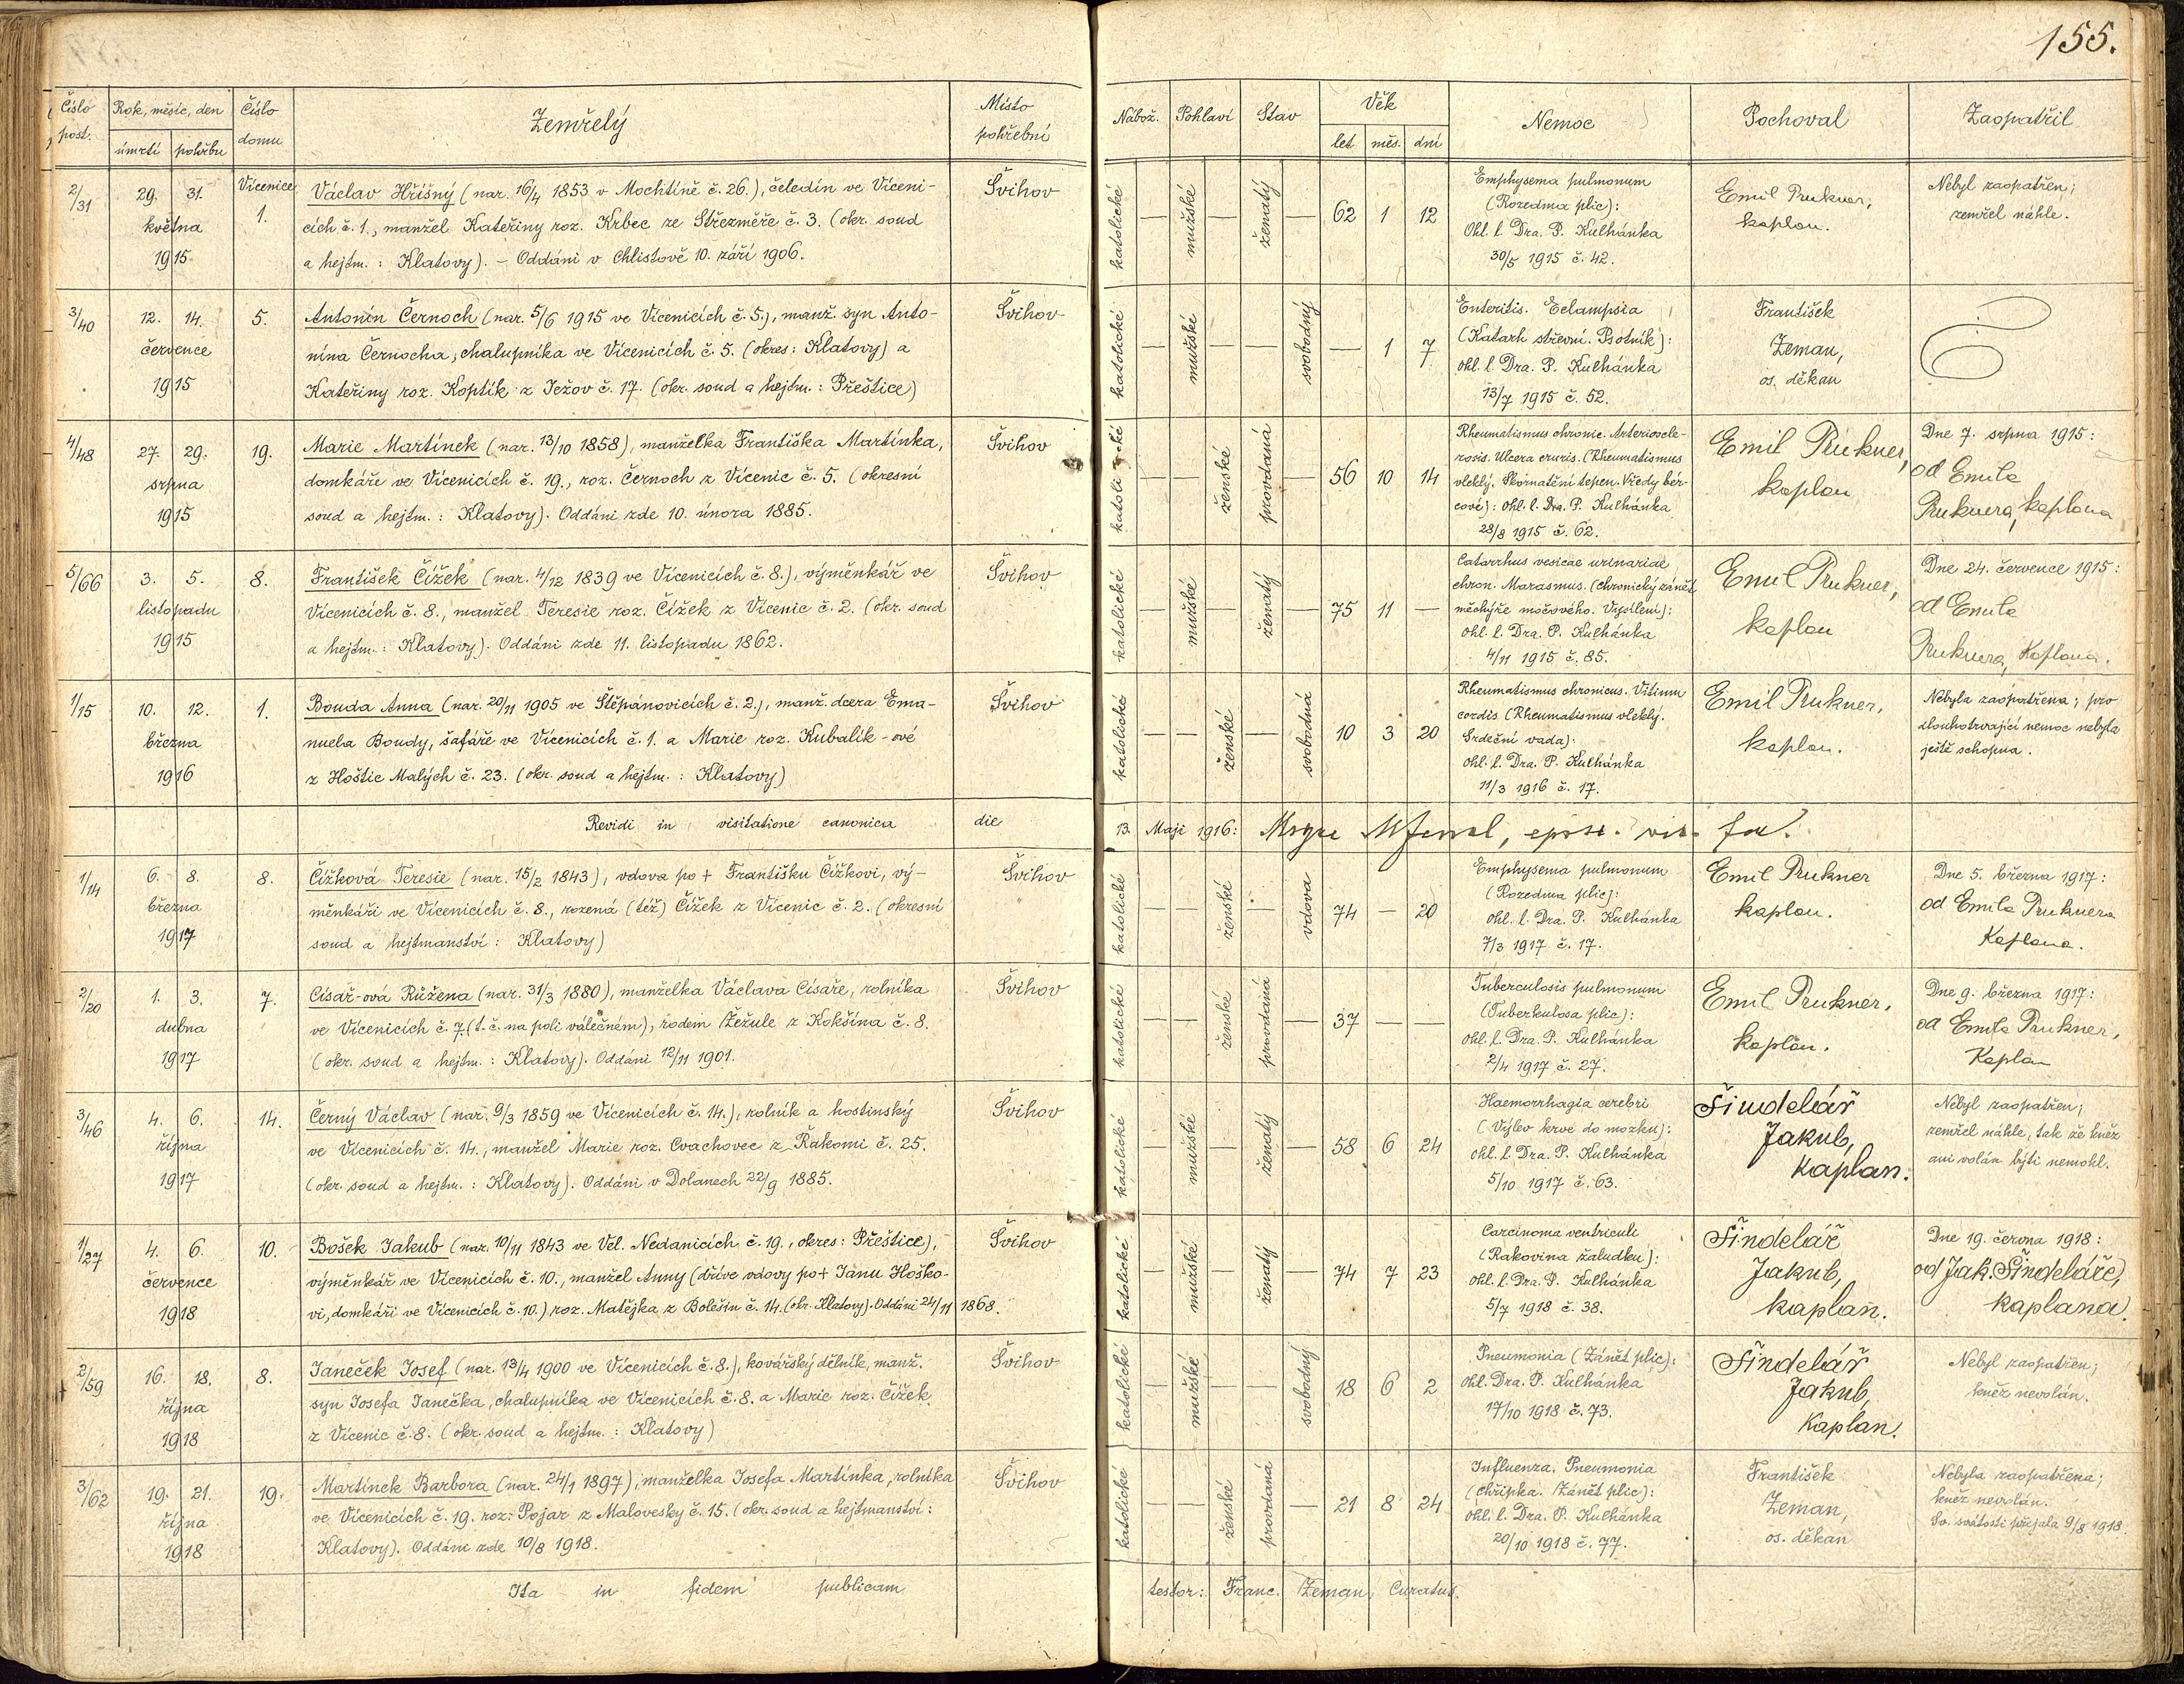 155.
Číslo post.
Rok, měsíc, den
úmrtí
pohřbu
Číslo domu
Zemřelý
Místo pohřební
Nábož.
Pohlaví
Stav
Věk
let
měs.
dní
Nemoc
Pochoval
Zaopatřil
2/31
29. 31.
května
1915
Vícenice
1.
Václav Hříšný (nar. 16/4 1853 v Mochtíně č. 26.), čeledín ve Víceni-
cích č. 1., manžel Kateřiny roz. Krbec ze Střezměře č. 3. (okr. soud
a hejtm.: Klatovy). – Oddáni v Chlistově 10. září 1906.
Švihov
katolické
mužské
ženatý
62 1 12
Emphysema pulmonum
(Rozedma plic):
Ohl. l. Dra. P. Kulhánka
30/5 1915 č. 42.
Emil Prukner,
kaplan.
Nebyl zaopatřen;
zemřel náhle.
3/40
12. 14.
července
1915
5.
Antonín Černoch (nar. 5/6 1915 ve Vícenicích č. 5.), manž. syn Anto-
nína Černocha, chalupníka ve Vícenicích č. 5. (okres: Klatovy) a
Kateřiny roz. Koptík z Ježov č. 17. (okr. soud a hejtm.: Přeštice)
Švihov
katolické
mužské
svobodný
— 1 7
Enteritis. Eclampsia
(Katarh střevní. Psotník):
ohl. l. Dra. P. Kulhánka
13/7 1915 č. 52.
František
Zeman,
os. děkan
4/48
27. 29.
srpna
1915
19.
Marie Martínek (nar. 13/10 1858), manželka Františka Martínka,
domkáře ve Vícenicích č. 19., roz. Černoch z Vícenic č. 5. (okresní
soud a hejtm.: Klatovy). Oddáni zde 10. února 1885.
Švihov
katolické
ženské
provdaná
56 10 14
Rheumatismus chronic. Arterioscle-
rosis. Ulcera cruris. (Rheumatismus
vleklý. Skornatění tepen. Vředy bér-
cové): ohl. l. Dra. P. Kulhánka
28/8 1915 č. 62.
Emil Prukner,
kaplan
Dne 7. srpna 1915:
od Emila
Pruknera, kaplana
5/66
3. 5.
listopadu
1915
8.
František Čížek (nar. 4/12 1839 ve Vícenicích č. 8.), výměnkář ve
Vícenicích č. 8., manžel Teresie roz. Čížek z Vícenic č. 2. (okr. soud
a hejtm.: Klatovy). Oddáni zde 11. listopadu 1862.
Švihov
katolické
mužské
ženatý
75 11 —
Catarrhus vesicae urinariae
chron. Marasmus. (Chronický zánět
měchýře močového. Vysílení):
ohl. l. Dra. P. Kulhánka
4/11 1915 č. 85.
Emil Prukner,
kaplan
Dne 24. července 1915:
od Emila
Pruknera, Kaplana.
1/15
10. 12.
března
1916
1.
Bouda Anna (nar. 20/11 1905 ve Štěpánovicích č. 2.), manž. dcera Ema-
nuela Boudy, šafáře ve Vícenicích č. 1. a Marie roz. Kubalík-ové
z Hoštic Malých č. 23. (okr. soud a hejtm.: Klatovy)
Švihov
katolické
ženské
svobodná
10 3 20
Rheumatismus chronicus. Vitium
cordis (Rheumatismus vleklý.
Srdeční vada):
ohl. l. Dra. P. Kulhánka
11/3 1916 č. 17.
Emil Prukner,
kaplan.
Nebyla zaopatřena; pro
dlouhotrvající nemoc nebyla
ještě schopna.
Revidi in visitatione canonica die 13. Maji 1916:
1/14
6. 8.
března
1917
8.
Čížková Teresie (nar. 15/2 1843), vdova po + Františku Čížkovi, vý-
měnkáři ve Vícenicích č. 8., rozená (též) Čížek z Vícenic č. 2. (okresní
soud a hejtmanství: Klatovy)
Švihov
katolické
ženské
vdova
74 — 20
Emphysema pulmonum
(Rozedma plic):
ohl. l. Dra. P. Kulhánka
7/3 1917 č. 17.
Emil Prukner
kaplan.
Dne 5. března 1917:
od Emila Pruknera
Kaplana.
2/20
1. 3.
dubna
1917
7.
Císař-ová Růžena (nar. 31/3 1880), manželka Václava Císaře, rolníka
ve Vícenicích č. 7. (t. č. na poli válečném), rodem Žežule z Kokšína č. 8.
(okr. soud a hejtm.: Klatovy). Oddáni 12/11 1901.
Švihov
katolické
ženské
provdaná
37 — —
Tuberculosis pulmonum
(Tuberkulosa plic):
ohl. l. Dra. P. Kulhánka
2/4 1917 č. 27.
Emil Prukner,
kaplan.
Dne 9. března 1917:
od Emila Prukner,
Kaplan
3/46
4. 6.
října
1917
14.
Černý Václav (nar. 9/3 1859 ve Vícenicích č. 14.), rolník a hostinský
ve Vícenicích č. 14., manžel Marie roz. Cvachovec z Řakomi č. 25.
(okr. soud a hejtm.: Klatovy). Oddáni v Dolanech 22/9 1885.
Švihov
katolické
mužské
ženatý
58 6 24
Haemorrhagia cerebri
(Výlev krve do mozku):
ohl. l. Dra. P. Kulhánka
5/10 1917 č. 63.
Šindelář
Jakub,
kaplan.
Nebyl zaopatřen;
zemřel náhle, tak že kněz
ani volán býti nemohl.
1/27
4. 6.
července
1918
10.
Bošek Jakub (nar. 10/11 1843 ve Vel. Nedanicích č. 19., okres: Přeštice),
výměnkář ve Vícenicích č. 10., manžel Anny (dříve vdovy po + Janu Hoško-
vi, domkáři ve Vícenicích č. 10.) roz. Matějka z Bolešin č. 14. (okr. Klatovy). Oddáni 24/11 1868.
Švihov
katolické
mužské
ženatý
74 7 23
Carcinoma ventriculi
(Rakovina žaludku):
ohl. l. Dra. P. Kulhánka
5/7 1918 č. 38.
Šindelář
Jakub,
kaplan.
Dne 19. června 1918:
od Jak. Šindeláře,
kaplana.
2/59
16. 18.
října
1918
8.
Janeček Josef (nar. 13/4 1900 ve Vícenicích č. 8.), kovářský dělník, manž.
syn Josefa Janečka, chalupníka ve Vícenicích č. 8. a Marie roz. Čížek
z Vícenic č. 8. (okr. soud a hejtm.: Klatovy)
Švihov
katolické
mužské
svobodný
18 6 2
Pneumonia (Zánět plic):
ohl. Dra. P. Kulhánka
17/10 1918 č. 73.
Šindelář
Jakub,
Kaplan.
Nebyl zaopatřen;
kněz nevolán.
3/62
19. 21.
října
1918
19.
Martínek Barbora (nar. 24/1 1897), manželka Josefa Martínka, rolníka
ve Vícenicích č. 19. roz. Pojar z Malovesky č. 15. (okr. soud a hejtmanství:
Klatovy). Oddáni zde 10/8 1918.
Švihov
katolické
ženské
provdaná
21 8 24
Influenza. Pneumonia
(Chřipka. Zánět plic):
ohl. l. Dra. P. Kulhánka
20/10 1918 č. 77.
František
Zeman,
os. děkan
Nebyla zaopatřena;
kněz nevolán.
Sv. svátosti přijala 9/8 1918.
Ita in fidem publicam testor: Franc. Zeman, Curatus.